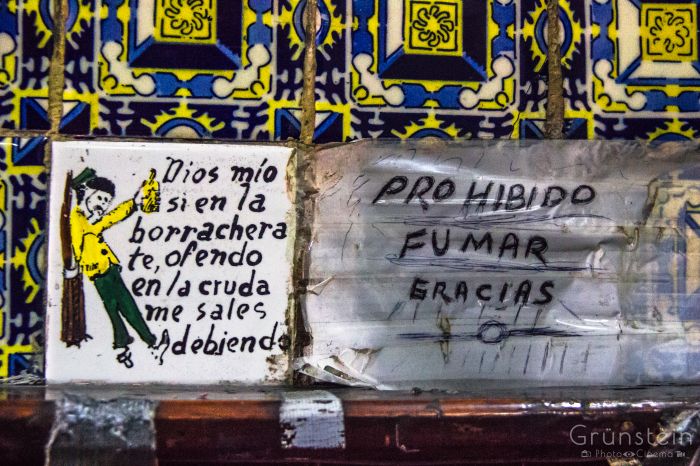 Dios mío
si en la
borrachera
te, ofendo
en la cruda
me sales
debiendo
PROHIBIDO
FUMAR
GRACIAS
Grünstein
Photo Cinema